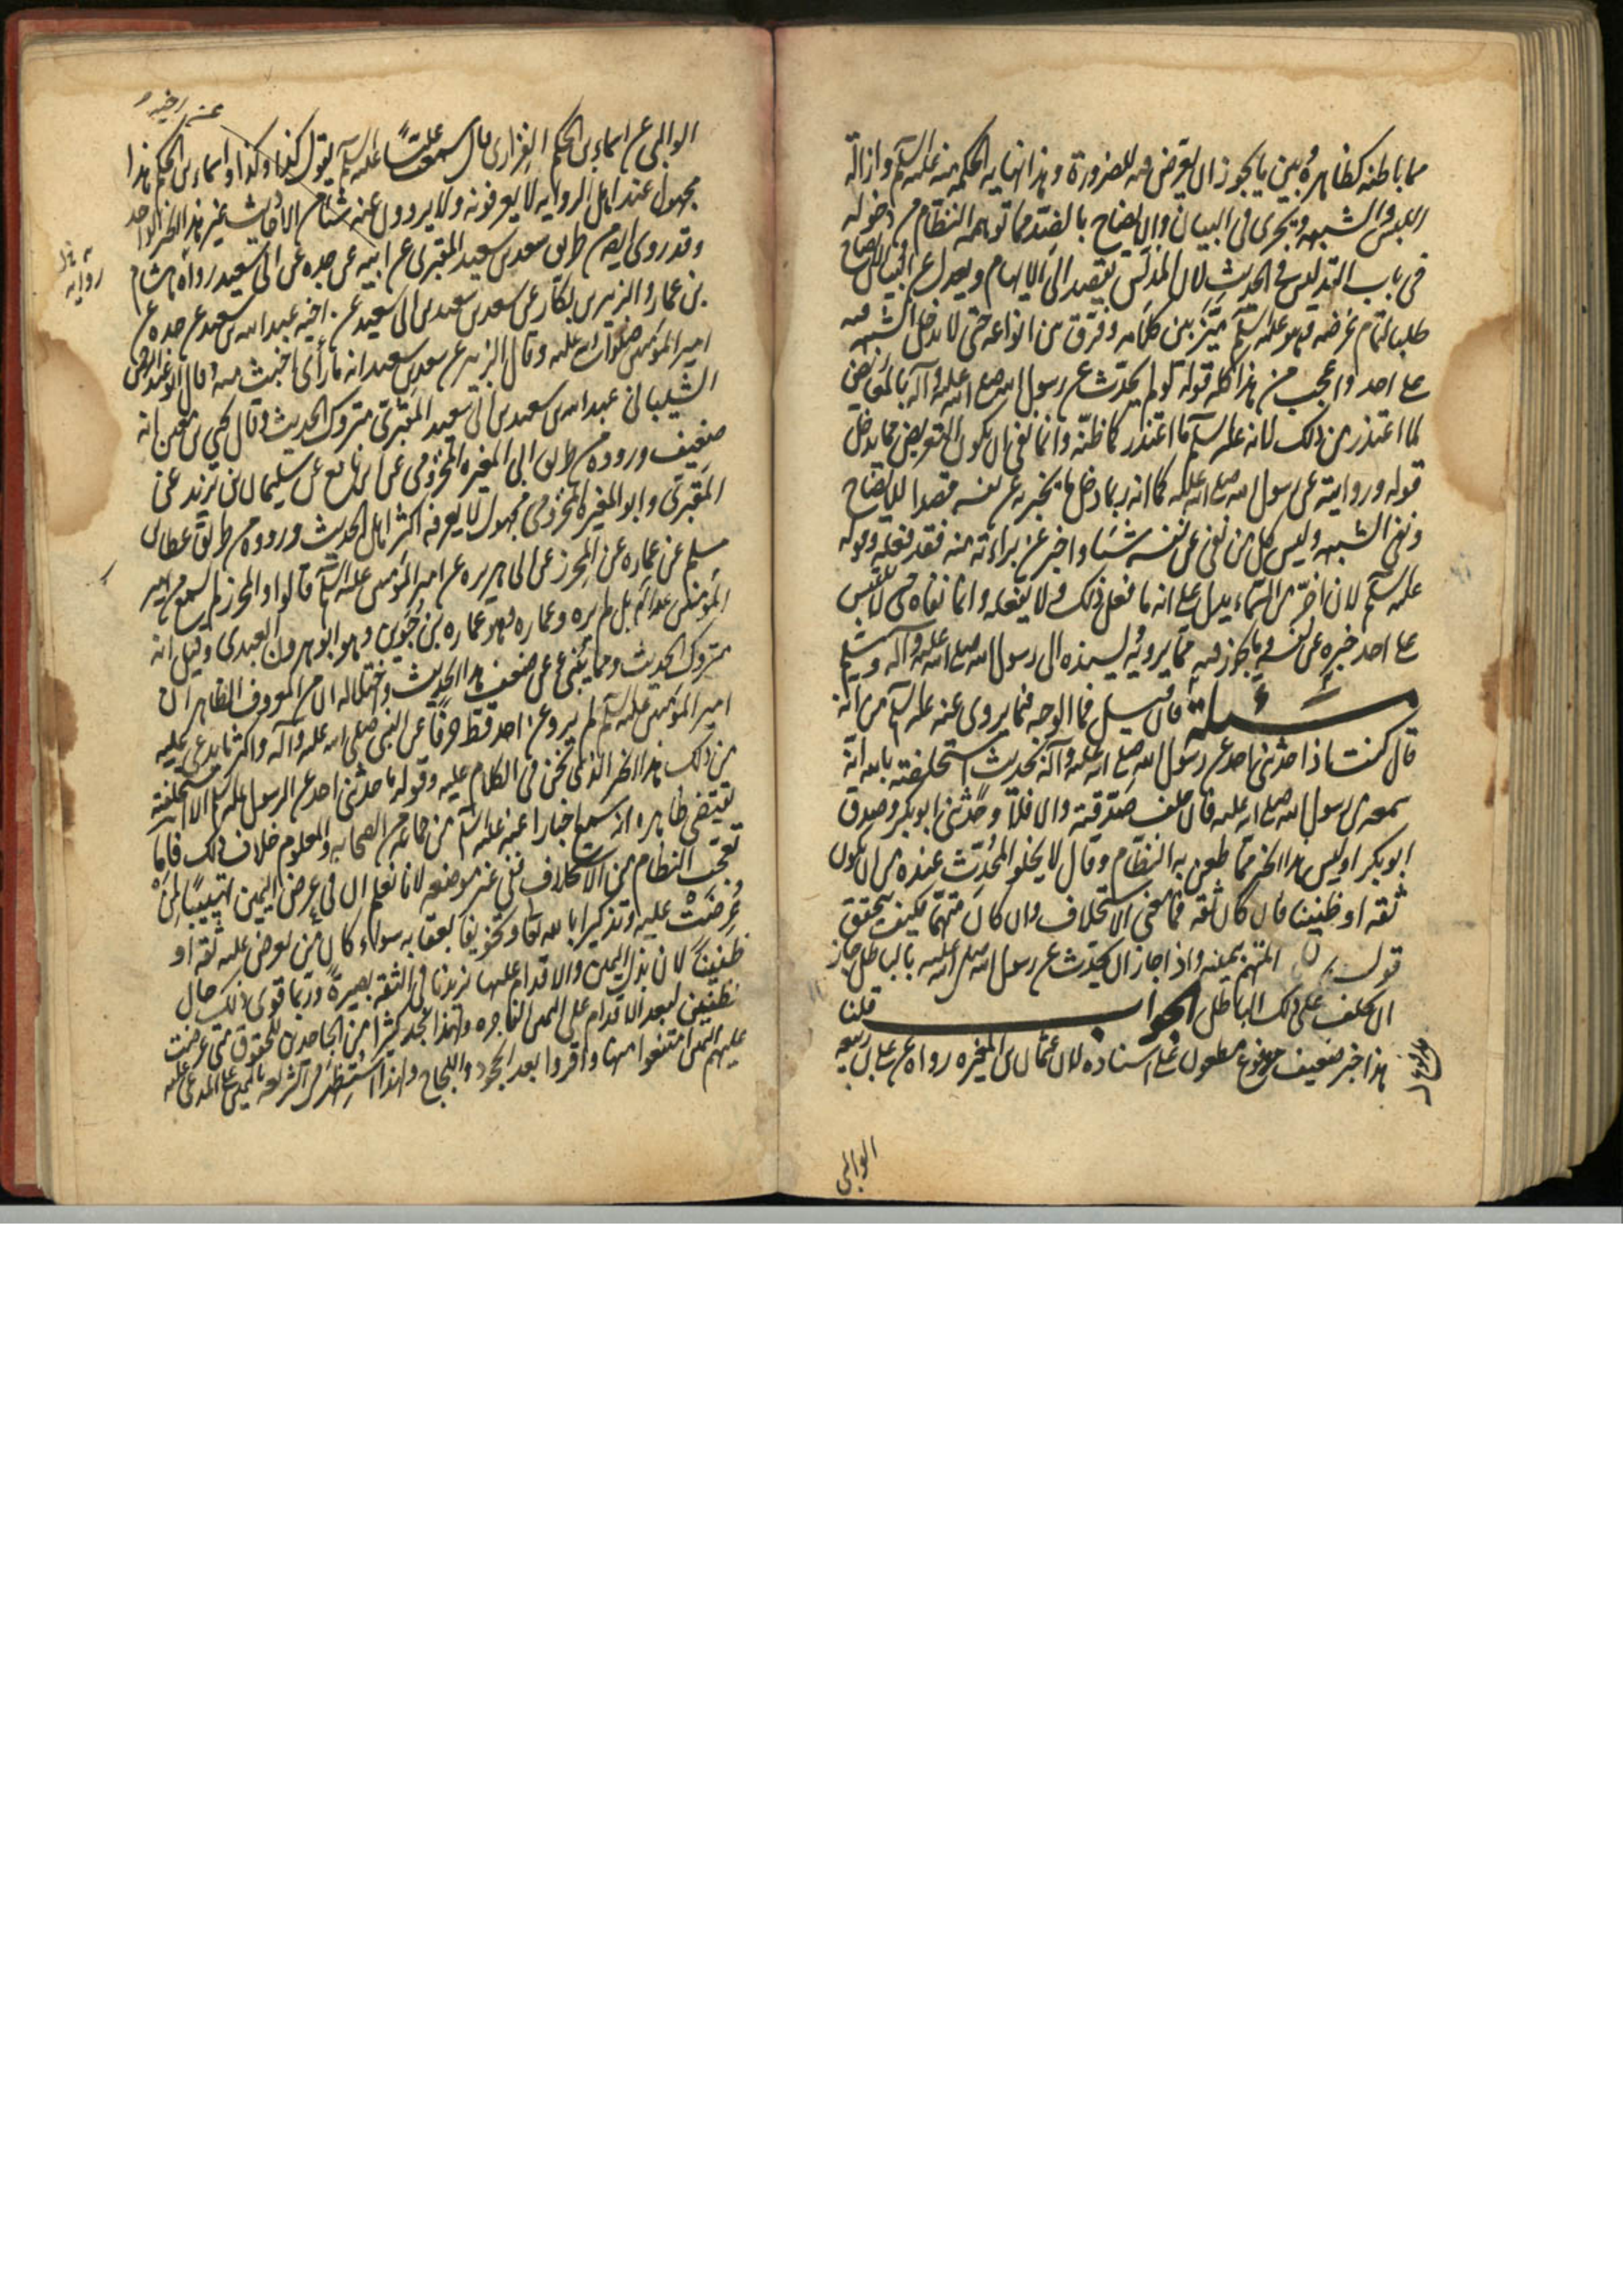 مما باطنه كظاهره وبين ما يجوز ان يعرض فيه للضرورة وهذا نهاية الحكمة منه عليه السلم وازالة
اللبس والشبهة ويجرى فى البيان والايضاح بالضد مما توهمه النظام من دخوله
فى باب التدليس فى الحديث لان المدلس يقصد الى الابهام ويعدل عن البيان والايضاح
طلبا لتمام غرضه وهو عليه السلم ميّز بين كلامه وفرق بين انواعه حتى لا تدخل الشبهة فيه
على احد واعجب من هذا كله قوله لو لم يحدث عن رسول الله صلى الله عليه وآله بالمعاريض
لما اعتذر من ذلك لانه عليه السلم ما اعتذر كما ظنّه وانما نفى ان يكون التعريض مما يدخل
قوله وروايته عن رسول الله صلى الله عليه كما انه ربما دخل ما يخبر به عن نفسه قصدا للايضاح
ونفى الشبهة وليس كل من نفى عن نفسه شيئا واخبر عن براءته منه فقد فعله وقوله
عليه السلم لان اخرّ من السماء يدل على انه ما فعل ذلك ولا يفعله وانما نفاه حتى لا يلتبس
على احد خبره عن نفسه وما يجوز فيه مما يرويه ويسنده الى رسول الله صلى الله عليه وآله وسلم
مسئلة فان قيل فما الوجه فيما يروى عنه عليه السلم من انه
قال كنت اذا حدثنى احد عن رسول الله صلى الله عليه وآله بحديث استحلفته بالله انه
سمعه من رسول الله صلى الله عليه فان حلف صدّقته والا فلا وحدّثنى ابو بكر وصدق
ابو بكر اوليس هذا الخبر مما طعن به النظّام وقال لا يخلو المحدّث عنده من ان يكون
ثقة او ظنينا فان كان ثقة فما معنى الاستحلاف وان كان متهما فكيف يتحقق
قول المتهم بيمينه واذا جاز ان يحدّث عن رسول الله صلى الله عليه بالباطل جاز
ان يحلف على ذلك الباطل الجواب قلنا
هذا خبر ضعيف مدفوع مطعون على اسناده لان عثمان بن المغيرة رواه عن على بن ربيعة
الوالبى
الوالبى عن اسماء بن الحكم الفزارى قال سمعت عليّا عليه السلم يقول كذا وكذا واسماء بن الحكم هذا
مجهول عند اهل الرواية لا يعرفونه ولا يروون عنه شيئا من الاحاديث غير هذا الخبر الواحد
وقد روى ايضا من طريق سعد بن سعيد المقبرى عن ابيه عن جده عن ابى سعيد رواه هشام
بن عمار والزبير بن بكار عن سعد بن سعيد بن ابى سعيد عن اخيه عبد الله بن سعيد عن جده عن
امير المؤمنين صلوات الله عليه وقال الزبير عن سعد بن سعيد انه ما رأى اخبث منه وقال ابو عبد الرحمن
الشيبانى عبد الله بن سعيد بن ابى سعيد المقبرى متروك الحديث وقال يحيى بن معين انه
ضعيف ورووه من طريق ابى المغيرة المخزومى عن ابن نافع عن سليمان بن يزيد عن
المقبرى وابو المغيرة المخزومى مجهول لا يعرفه اكثر اهل الحديث ورووه من طريق عطا بن
مسلم عن عمارة عن المحرز عن ابى هريرة عن امير المؤمنين عليه السلم قالوا والمحرز لم يسمع من امير
المؤمنين عليه السلم بل لم يره وعمارة وهو عمارة بن جوين وهو ابو هرون العبدى وقيل انه
متروك الحديث ومما ينبئ عن ضعف هذا الحديث واختلاله ان من المعروف الظاهر ان
امير المؤمنين عليه السلم لم يرو عن احد قط حرفا عن النبى صلى الله عليه وآله واكثر ما يدعى عليه
من ذلك هذا الخبر الذى نحن فى الكلام عليه وقوله ما حدثنى احد عن الرسول عليه السلم الا استحلفته
يقتضى ظاهره انه سمع اخبارا عنه عليه السلم من جماعة من الصحابة والمعلوم خلاف ذلك فاما
تعجب النظام من الاستحلاف ففى غير موضعه لانا نعلم ان فى عرض اليمين تهييبا لمن
عرضت عليه وتذكيرا بالله تعا وتخويفا بعقابه سواء كان من يعرض عليه ثقة او
ظنينا لان بذل اليمين والاقدام عليها يزيدنا فى الثقة بصيرة وربما قوى ذلك حال
الظنين لبعد الاقدام على اليمين الفاجرة ولهذا نجد كثيرا من الجاحدين للحقوق متى عرضت
عليهم اليمين امتنعوا منها واقروا بعد الجحود واللجاج ولهذا استظهر فى الشريعة باليمين على المدعى عليه